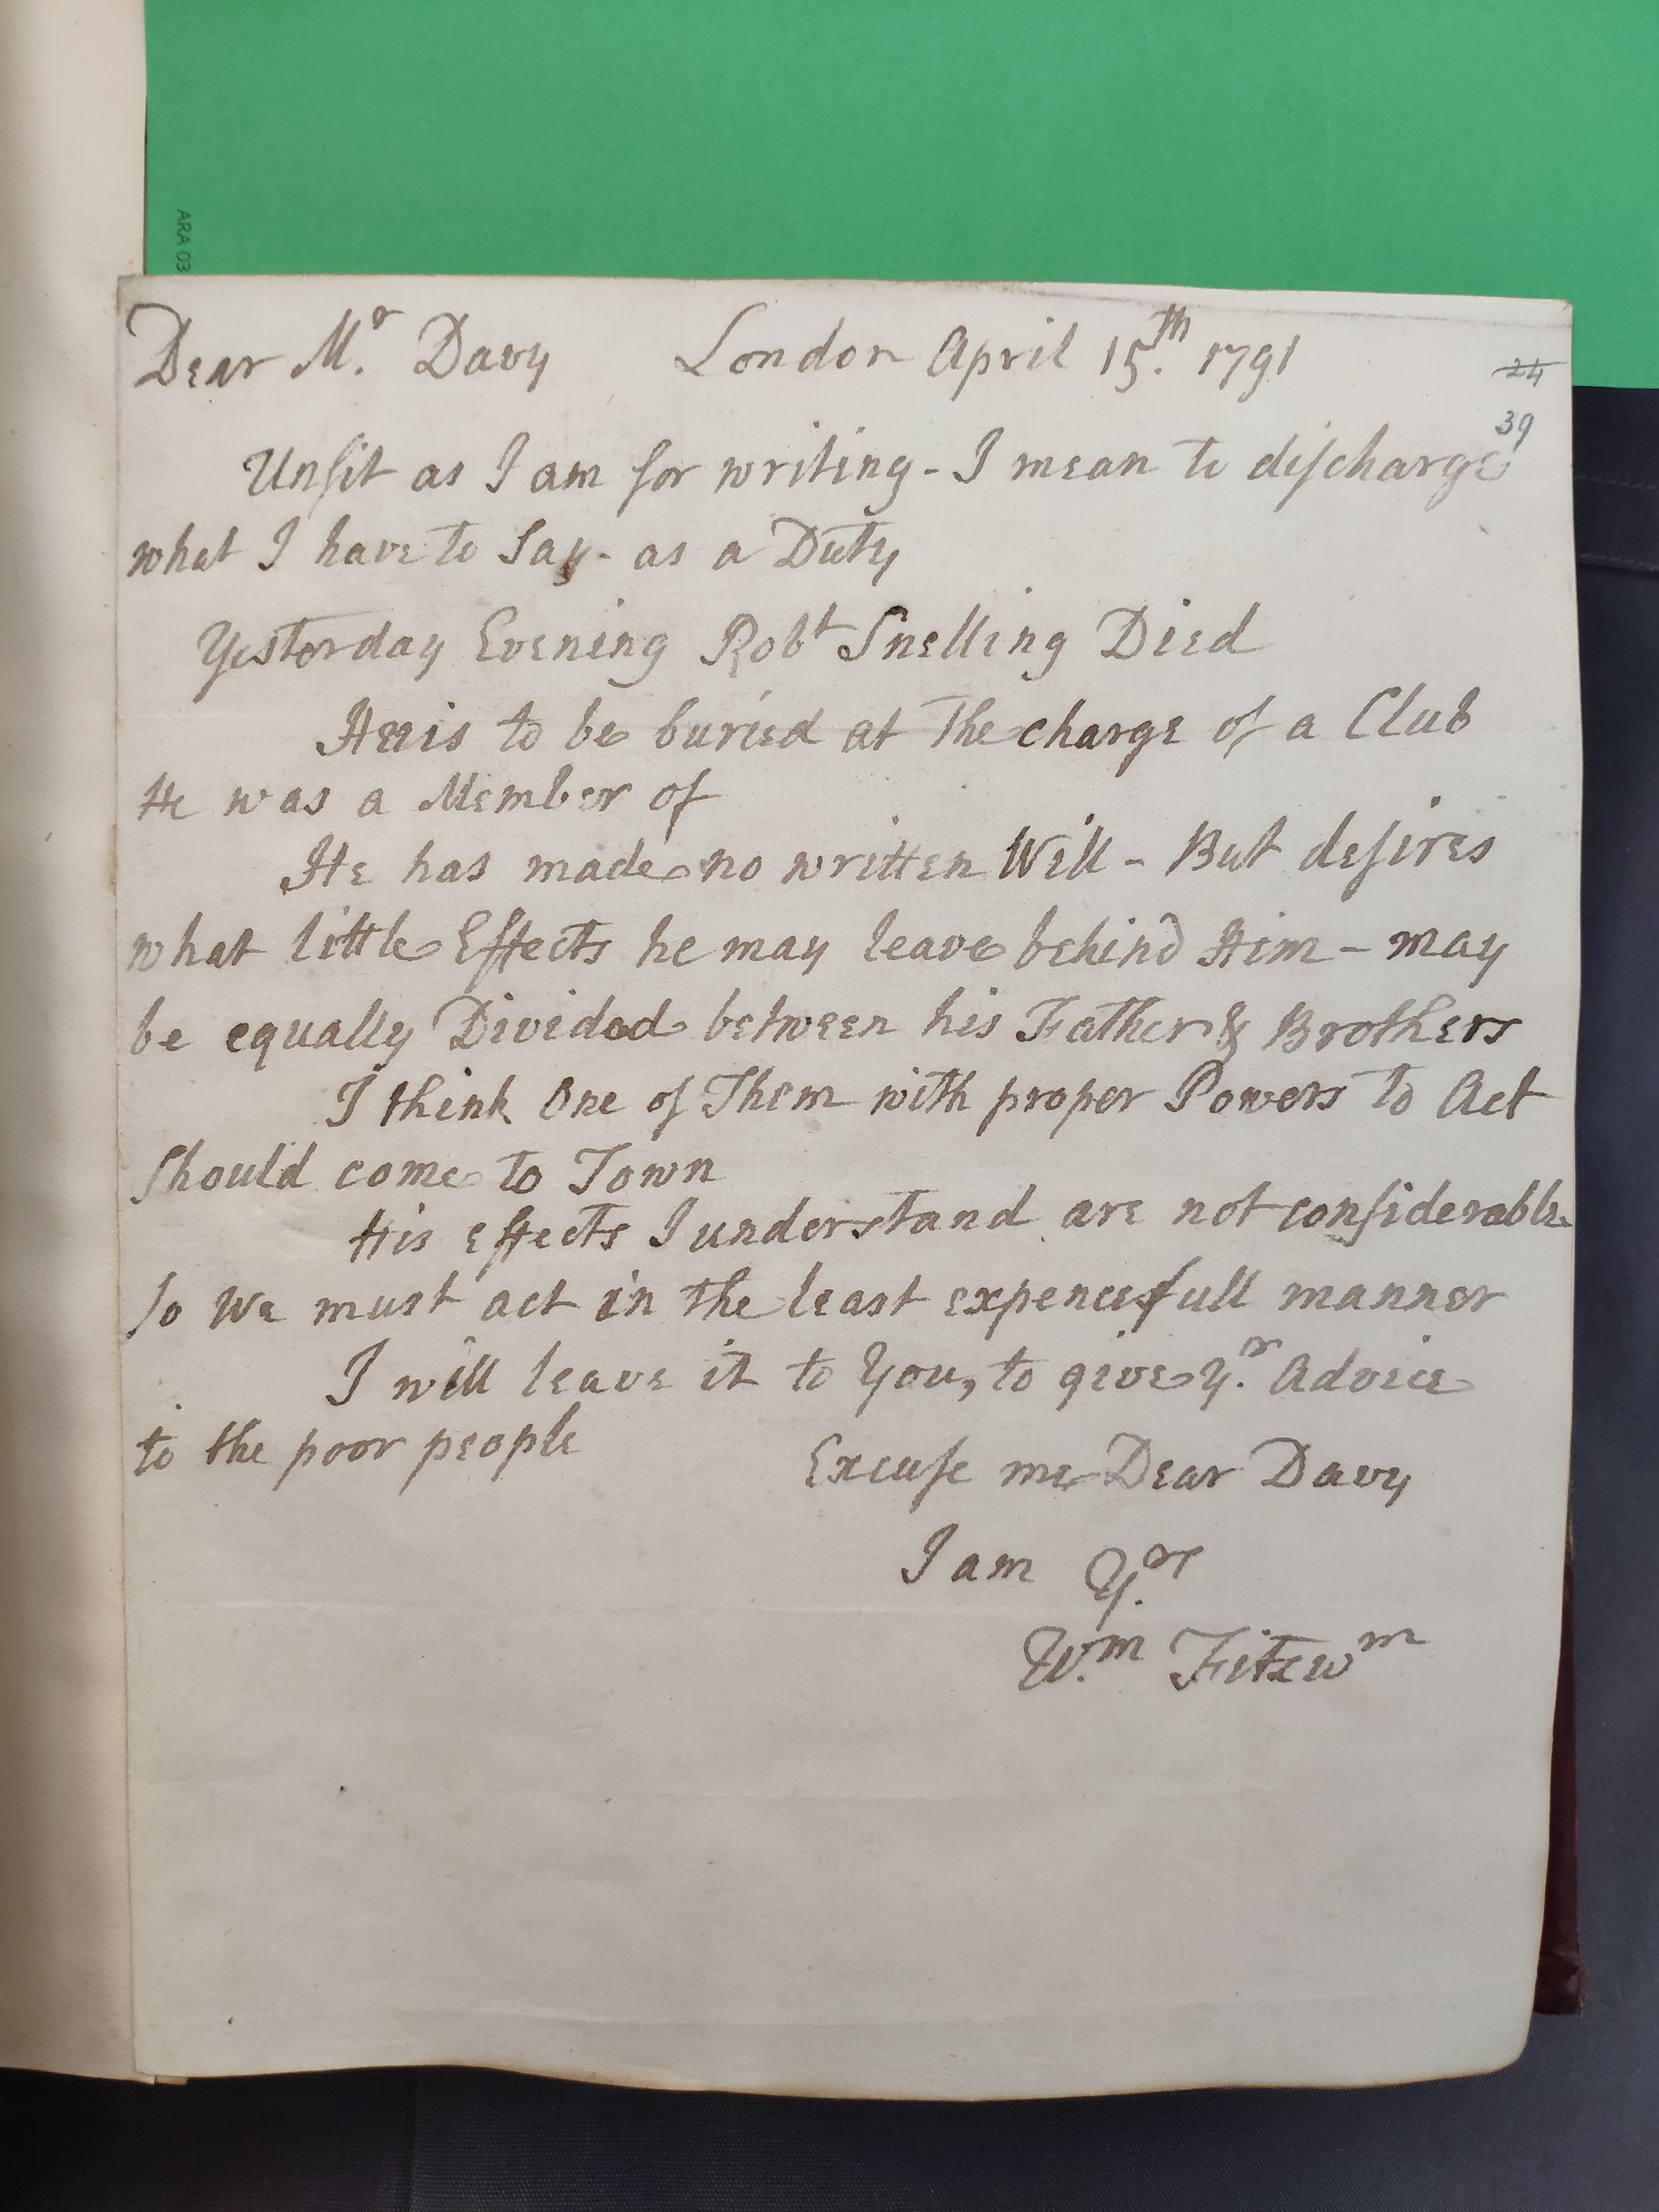 ARA 03
Dear Mr. Davy London April 15th. 1791
24
39
Unfit as I am for writing - I mean to diſcharge
what I have to Say - as a Duty
Yesterday Evening Robt Snelling Died
He is to be buried at The charge of a Club
He was a Member of
He has made no written Will - But deſires
what little Effects he may leave behind Him - may
be equally Divided between his Father & Brothers
I think One of Them with proper Powers to Act
ſhould come to Town
His effects I understand are not conſiderable
ſo We must act in the least expencefull manner
I will leave it to You, to give Yr. Advice
to the poor people
Excuſe me Dear Davy
I am Yr.
Wm. Fitzwm